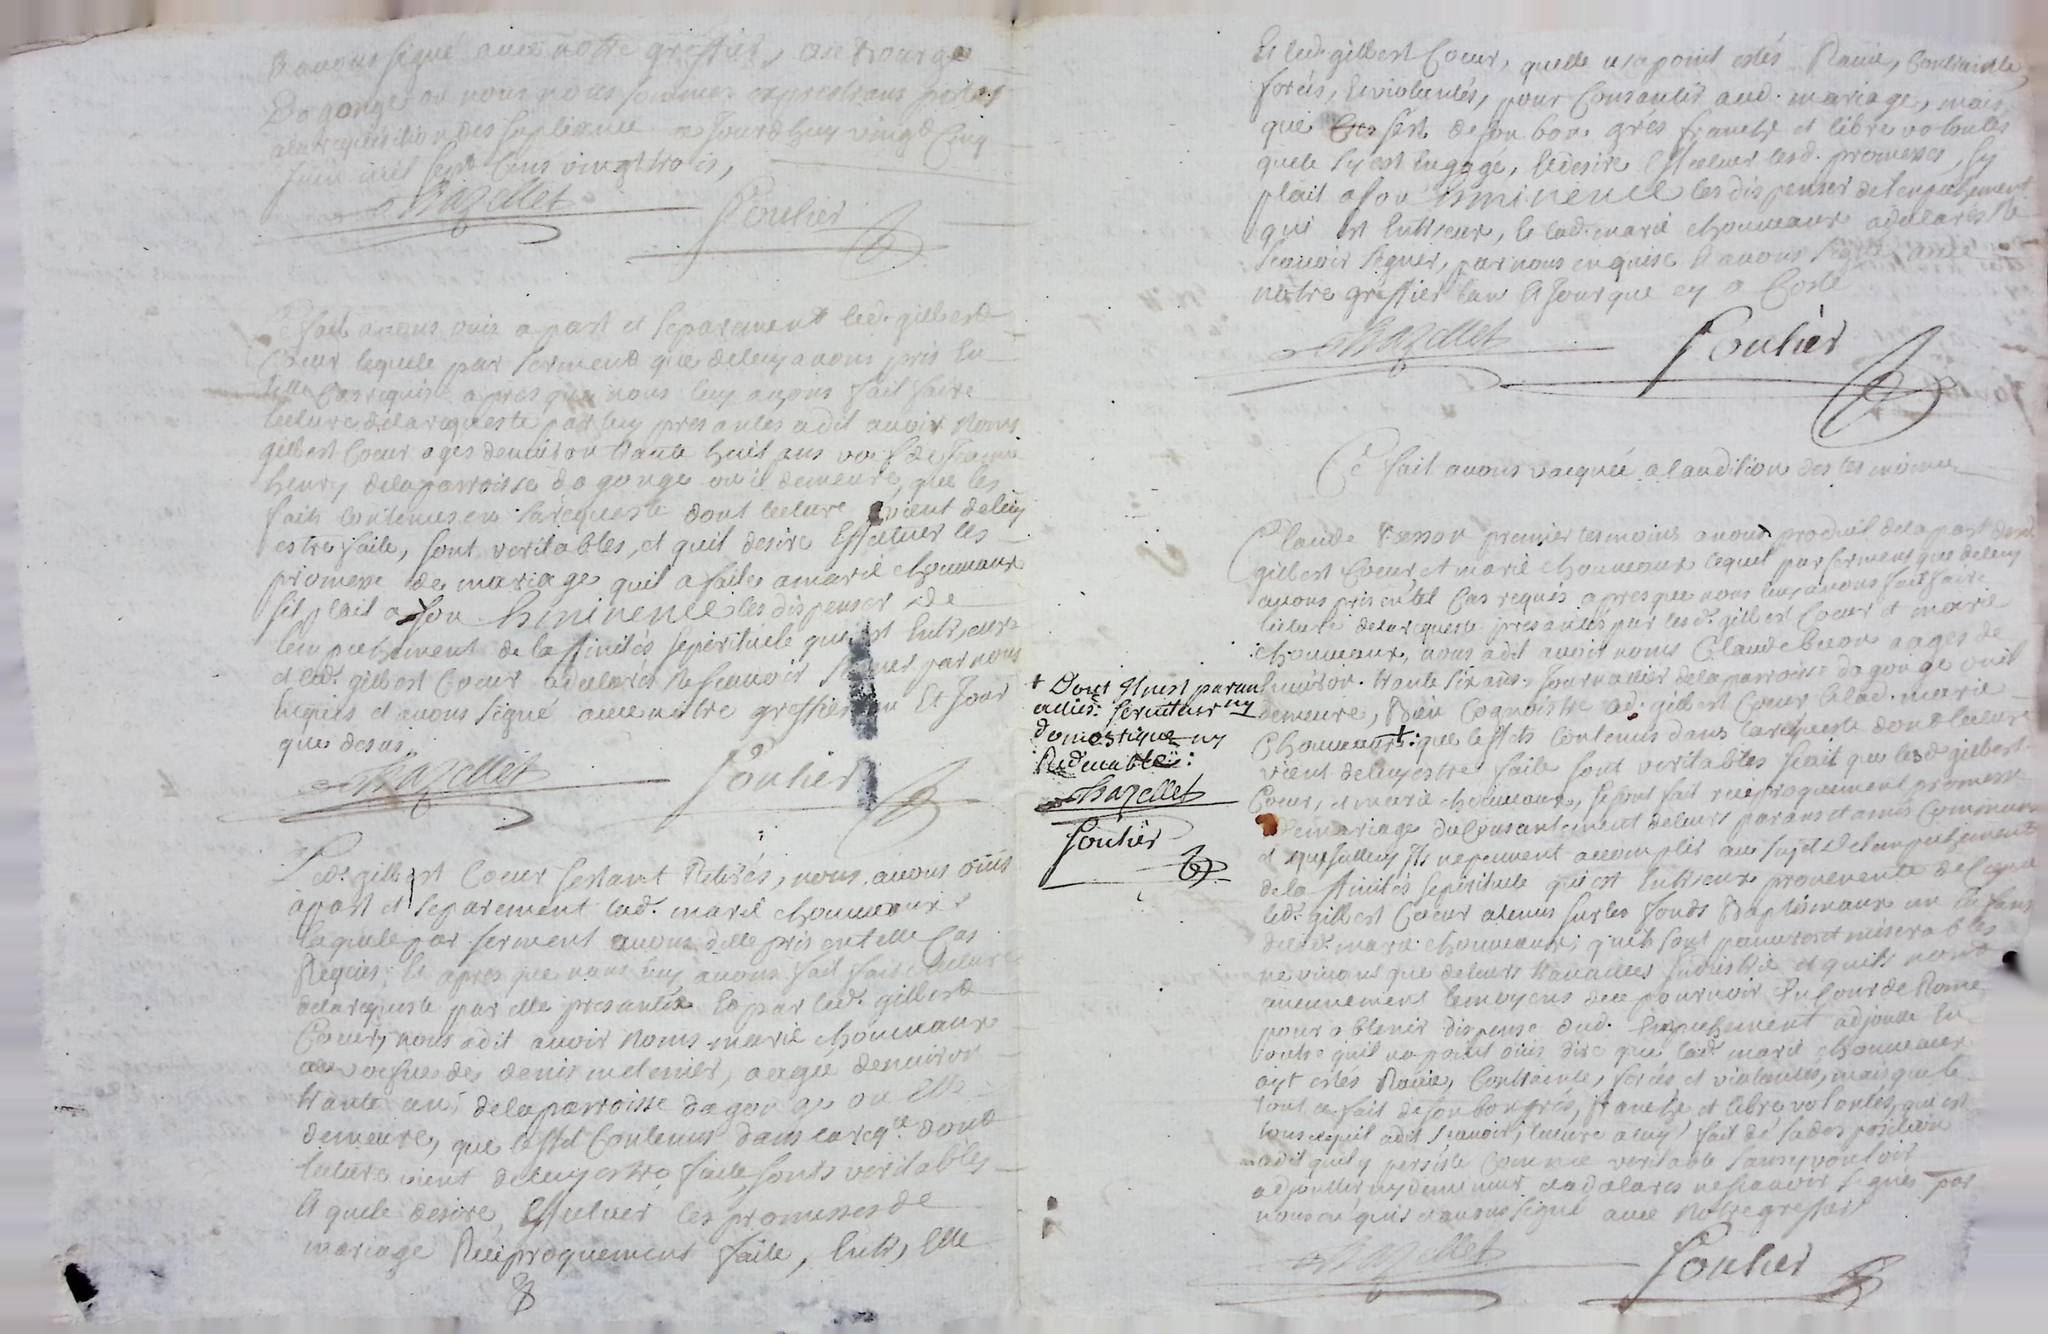 Et avons signé avec notre greffier, au Bourg
Dagonge ou nous nous sommes expres transportes
ala requisition des supliants a Jourdhuy vingt Cinq
Juin mil sept Cens vingt trois,
Chazellet Soulier
Ce fait avons ouie apart et separement led. gilbert
Coeur lequele par serment que deluy avons pris En
telle Cas requis apres que nous luy avons fait faire
lecture dela requeste par luy presantes adit avoir Noms
gilbert Coeur ages denuiron trante huit ans
henry dela parroisse dagonge ou il demeure, que les
faits Contenus en sa requeste dont lecture vient deluy
estre faite, sont veritables, et quil desire Effectuer les
promesse de mariage quil a faites a marie chouveaux
sil plait a son Eminence les dispenser de
lempechement de laffinités sepirituele qui est Entr'eux
et led. gilbert Coeur adeclarés ne scavoir signer par nous
Enquis et avons signé avec notre greffier Et Jour
que desus,
Chazellet Soulier
Led. gilbert Coeur sestant Retirés, nous avons ouis
apart et separement lad. marie chouveaux
laquele par serment avons delle pris en telle Cas
Requis, Et apres que nous luy avons fait faire lecture
dela requeste par elle presantée Et par led. gilbert
Coeur, nous adit avoir Noms marie chouveaux
veufue de denis aagée denuiron
trante ans dela parroisse dagonge ou Elle
demeure, que leffet Contenus dans la reqte. dont
lecture vient deluy estre faite sont veritables
Et quele desire Effectuer les promesses de
mariage Reciproquement faite, Entre Elle
Et led. gilbert Coeur, quelle na point estés Ravie, Contrainte,
forcés, Et violantés, pour Consantir aud. mariage, mais
que sest de son bon gres franche et libre volontes
quele sy est Engagé, Et desire Effectuer lesd. promesses, sy
plait a son Eminence les dispenser de lempechement
qui est Entr'eux, Et lad. marie chouveaux adeclarés Ne
scavoir signer, par nous enquise Et avons signé avec
notre greffier Et Jour que cy a Coste
Chazellet Soulier
Ce fait avons vacquée a laudition des tesmoins
Claude Besson premier tesmoins a nous produit dela part desd.
gilbert Coeur et marie chouveaux lequel par serment que deluy
avons pris en tel Cas requis apres que nous luy avons fait faire
lecture dela requeste presantés par lesd. gilbert Coeur et marie
chouveaux, nous adit avoir noms Claude aages de
Enuiron trante six ans, Journalier dela parroisse dagonge ou il
demeure, Bien Cognoistre led. gilbert Coeur Et lad. marie
Chouveaux +: que leffets Contenus dans la requeste dont lecture
vient deluy estre faite sont veritables scait que lesd. gilbert
Coeur, et marie chouveaux, se sont fait reciproquement promesse
de mariage du Consantement de leurs parans et amis Communs
et que Ils ne peuvent accomplir au sujet de lempechement
de laffinités sepirituele qui est Entr'eux provenente de ce que
led. gilbert Coeur a tenus sur les fonds Baptismaux un Enfans
de lad. marie chouveaux, quils sont pauvres et miserables
ne vivans que de leurs travailles Industrie et quils nont
aucunement les moyens de se pourvoir En Cour de Rome
pour obtenir dispense dud. Empechement adjoute En
Contre quil na point ouis dire que lad. marie chouveaux
ayt estés Ravie, Contrainte, forcés et violantés, mais que le
tout ce fait de son bon grés, franche et libre volontés, qui est
tous ce quil adit scavoir, lecture a luy fait de sa desposition
adit quil y persiste Comme veritable sans y vouloir
adjoutter ny deminuer et adeclares ne scavoir signes par
nous enquis et avons signé avec Notre greffier
Chazellet Soulier
+ Dont Il nest paran
allies: serviteur ny
domestique ny
Redeuable:
Chazellet
Soulier